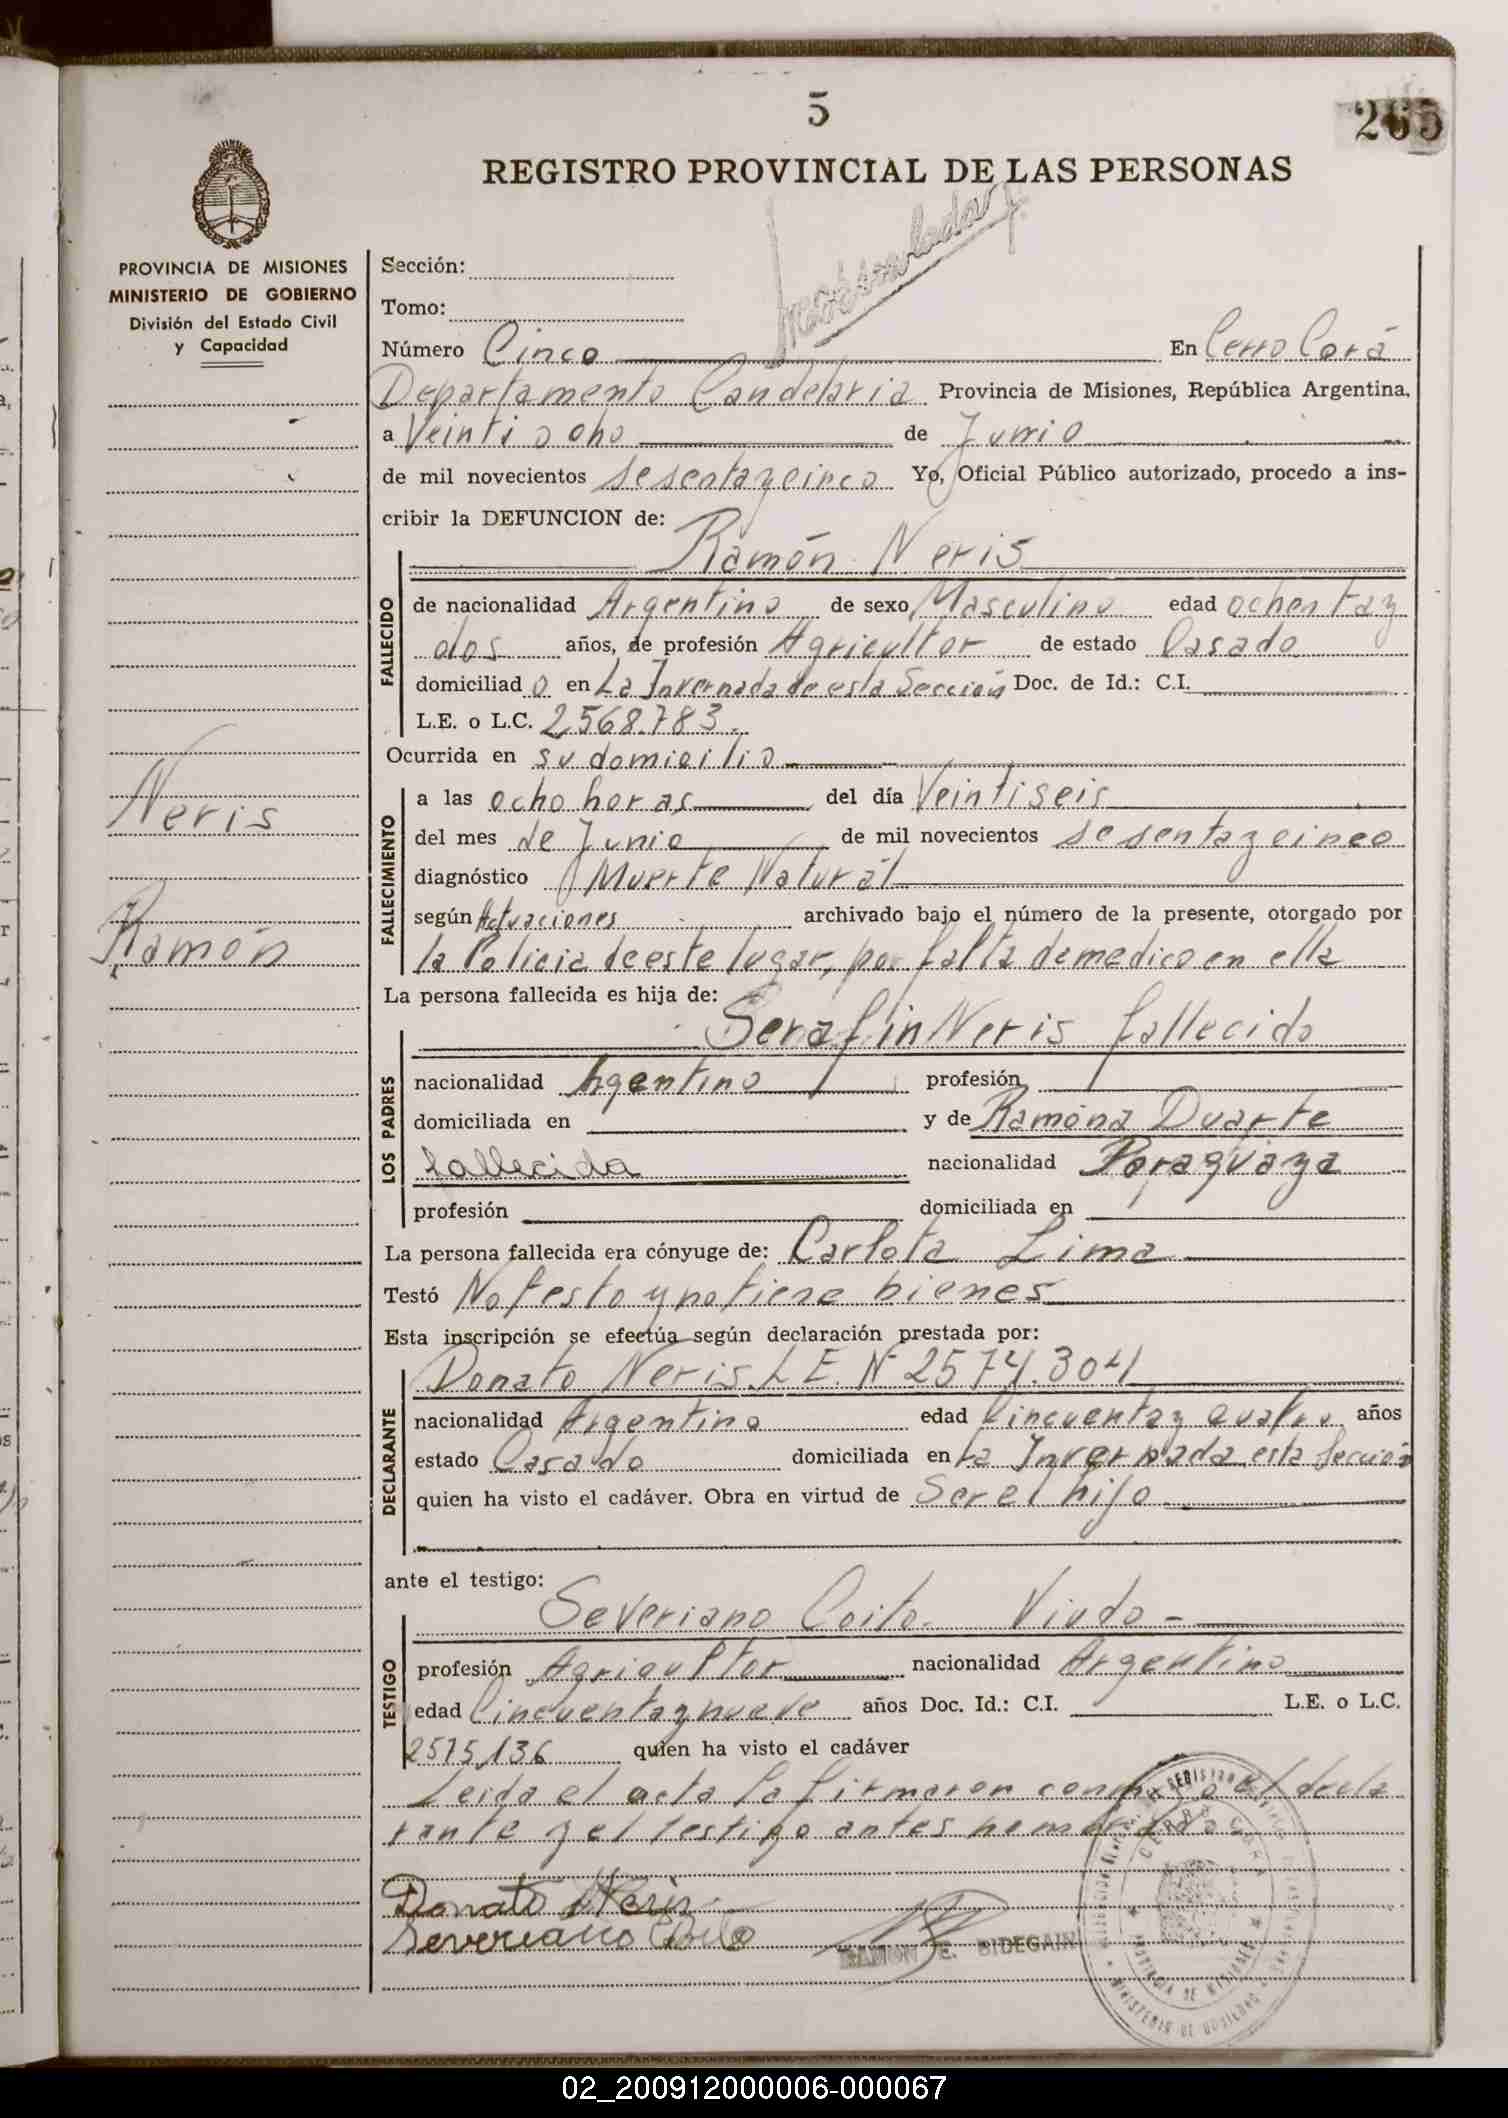 5
265
REGISTRO PROVINCIAL DE LAS PERSONAS
PROVINCIA DE MISIONES
MINISTERIO DE GOBIERNO
División del Estado Civil
y Capacidad
Sección:
Tomo:
Número Cinco En Cerro Corá
Departamento Candelaria Provincia de Misiones, República Argentina,
a Veinti ocho de Junio
de mil novecientos sesentaycinco Yo, Oficial Público autorizado, procedo a ins-
cribir la DEFUNCION de:
Ramón Neris
FALLECIDO
de nacionalidad Argentino de sexo Masculino edad ochentay
dos años, de profesión Agricultor de estado Casado
domiciliado en La Invernada de esta Sección Doc. de Id.: C.I.
L.E. o L.C. 2,568.783.
Ocurrida en su domicilio
Neris
Ramón
FALLECIMIENTO
a las ocho horas del día Veintiseis
del mes de Junio de mil novecientos sesentaycinco
diagnóstico Muerte Natural
según Actuaciones archivado bajo el número de la presente, otorgado por
la Policia de este lugar, por falta de medico en ella
La persona fallecida es hija de:
Serafin Neris fallecido
LOS PADRES
nacionalidad Agentino profesión
domiciliada en y de Ramóna Duarte
fallecida nacionalidad Paraguaya
profesión domiciliada en
La persona fallecida era cónyuge de: Carlota Lima
Testó No testo y no tiene bienes
Esta inscripción se efectúa según declaración prestada por:
Donato Neris. L E. Nº 2574.304
DECLARANTE
nacionalidad Argentino edad Cincuentay cuatro años
estado Casado domiciliada en La Invernada esta Sección
quien ha visto el cadáver. Obra en virtud de Ser el hijo
ante el testigo:
Severiano Coito - Viudo -
TESTIGO
profesión Agricultor nacionalidad Argentino
edad Cincuentaynueve años Doc. Id.: C.I. L.E. o L.C.
2515,136 quien ha visto el cadáver
Leida el acta la firmaron conmigo el decla
rante y el testigo antes nombrado
Donato Neris
Severiano Coito
RAMON E. BIDEGAIN
CERRO CORA
PROVINCIA DE MISIONES
MINISTERIO DE GOBIERNO
02_200912000006-000067